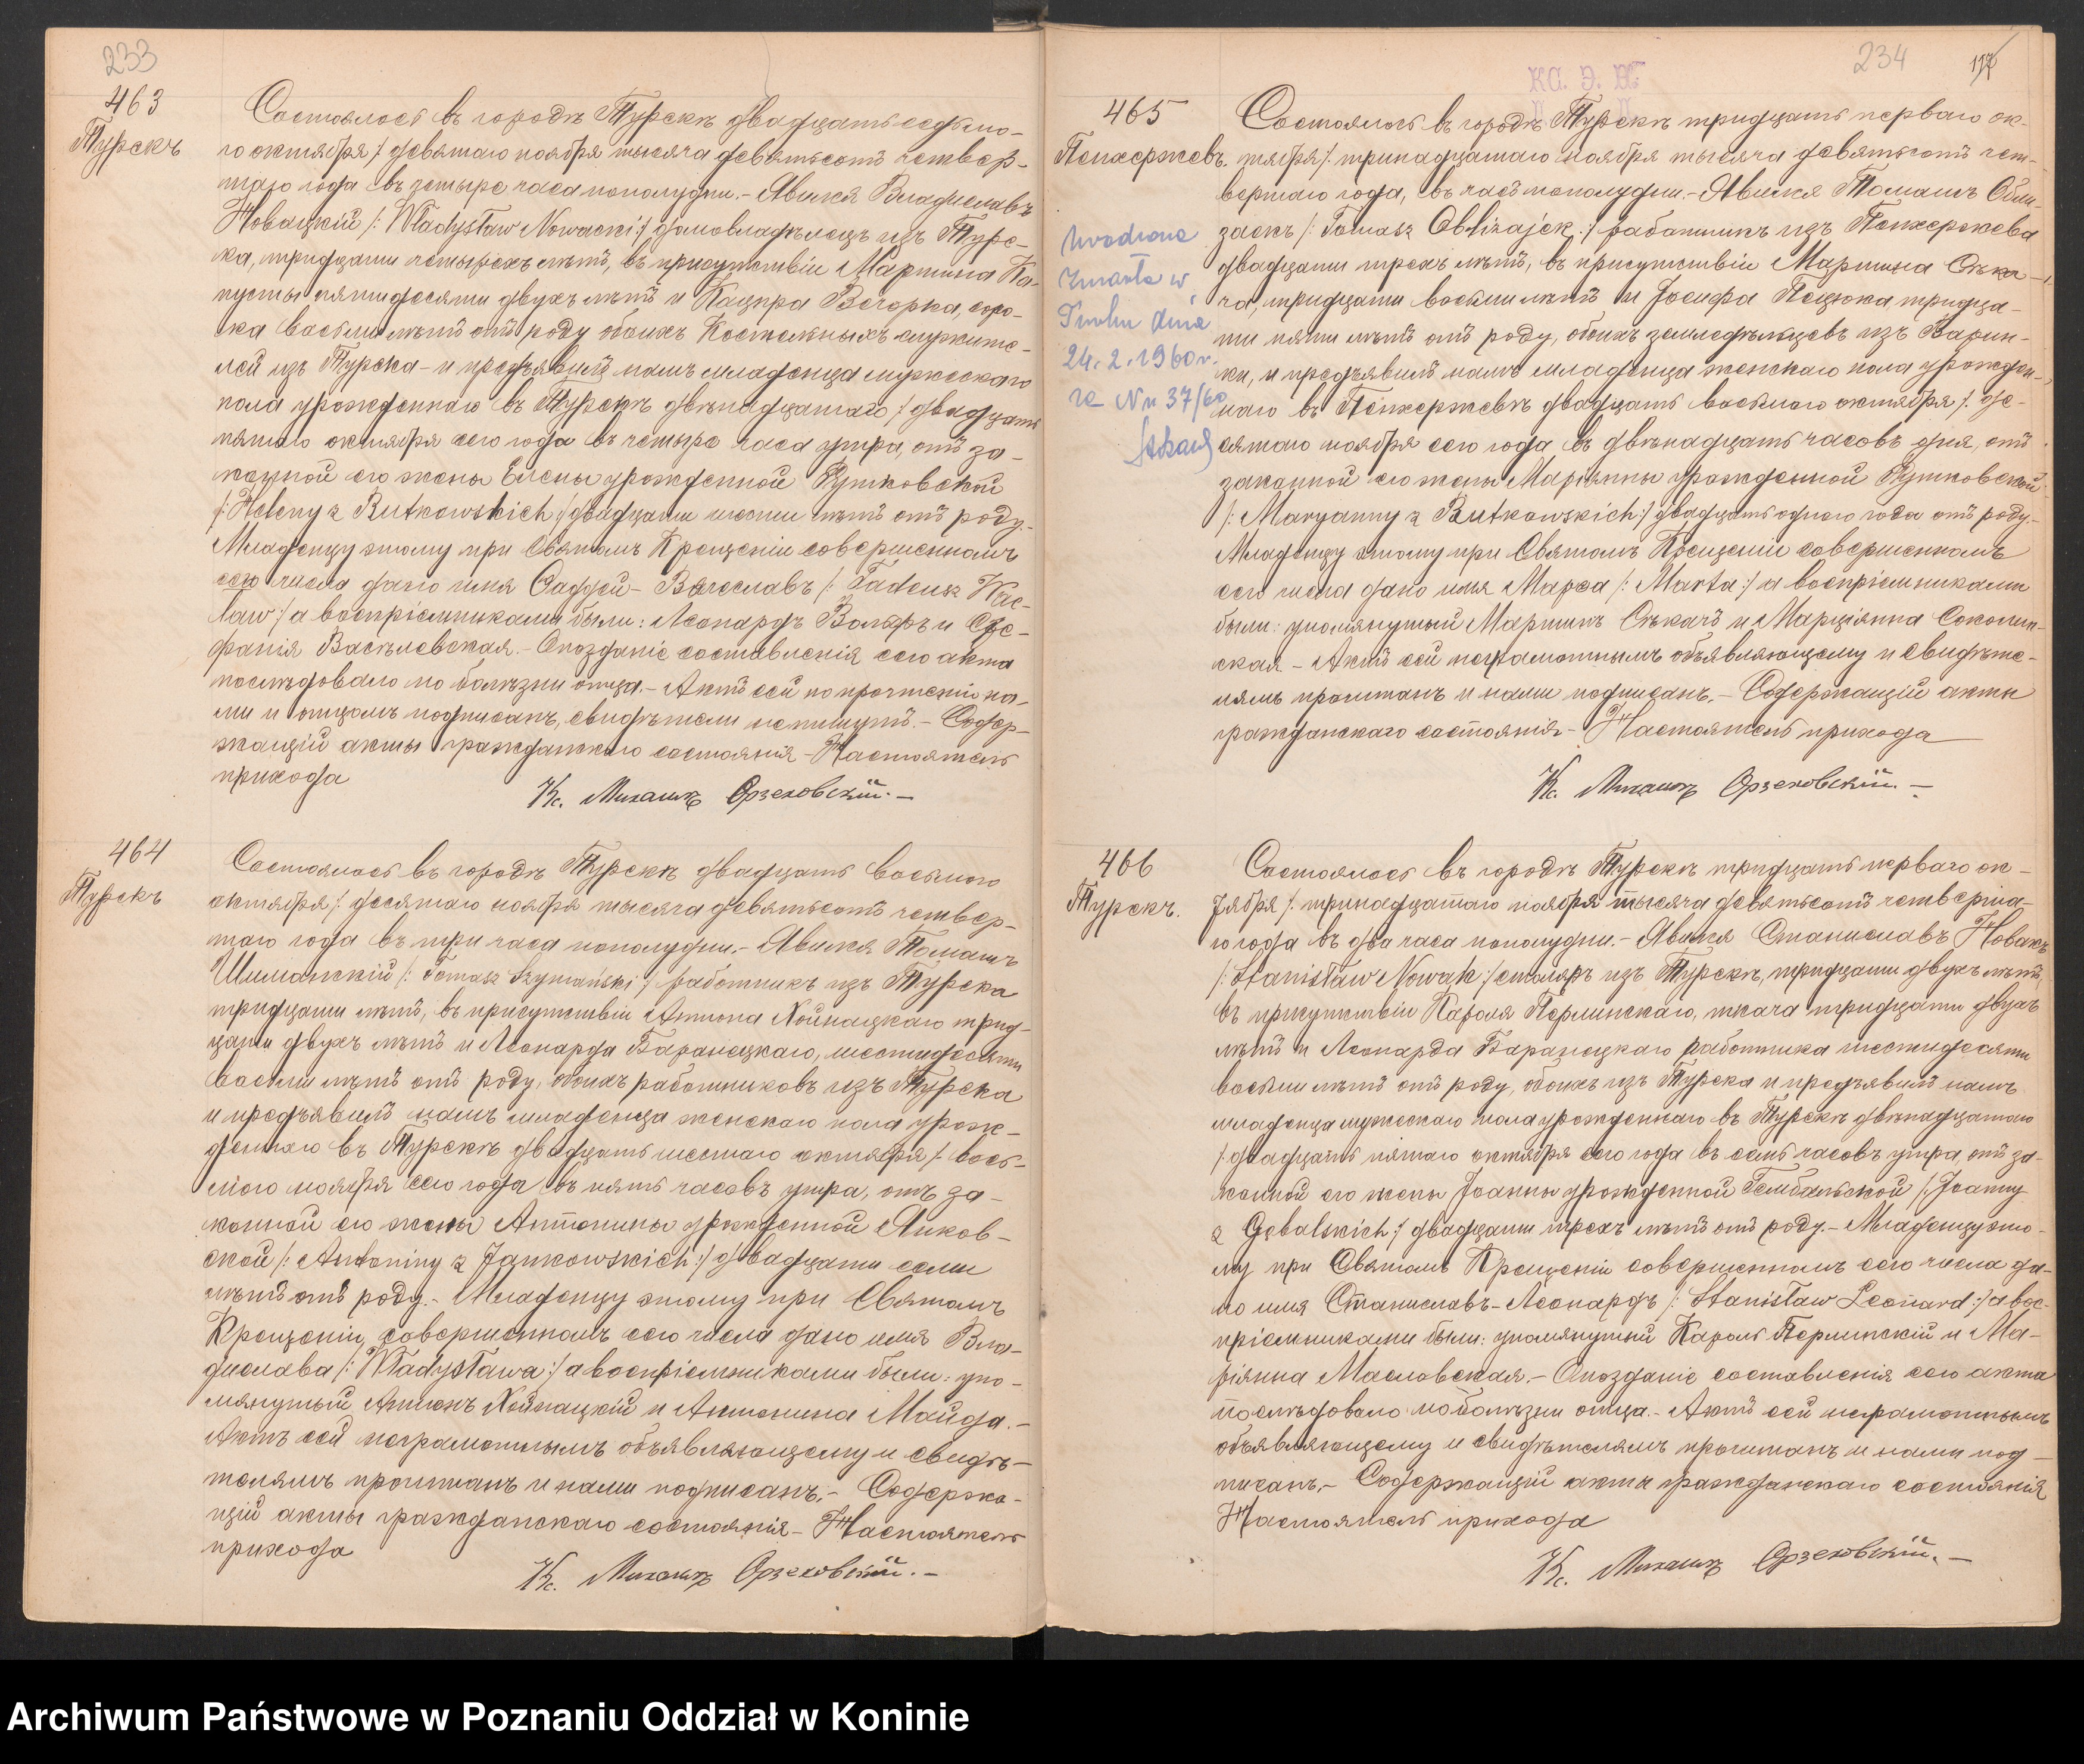 233
463
Турекъ
Состоялось въ городѣ Турекѣ двадцать седьмо-
го октября /: девятаго ноября тысяча девятьсотъ четвер-
таго года въ четыре часа пополудни.- Явился Владиславъ
Новацкій /: Władysław Nowacki :/ домовладѣлецъ изъ Туре-
ка, тридцати четырехъ лѣтъ, въ присутствіи Мартина Ка-
пусты пятидесяти двухъ лѣтъ и Кацпра Вечорка, соро-
ка восьми лѣтъ отъ роду обоихъ костельныхъ служите-
лей изъ Турека - и предъявилъ намъ младенца мужескаго
пола урожденнаго въ Турекѣ двѣнадцатаго / двадцать
пятаго октября сего года въ четыре часа утра, отъ за-
конной его жены Елены урожденной Рутковской
/: Heleny z Rutkowskich :/ двадцати шести лѣтъ отъ роду.-
Младенцу этому при Святомъ Крещеніи совершенномъ
сего числа дано имя Фаддей - Вячеславъ /: Tadeusz Wac-
ław :/ а воспріемниками были: Леонардъ и Сте-
фанія Васѣлевская.- Опозданіе составленія сего акта
послѣдовало по болѣзни отца.- Актъ сей по прочтеніи на-
ми и отцомъ подписанъ, свидѣтели непишутъ.- Содер-
жащій акты гражданскаго состоянія - Настоятель
прихода
Кс. Михаилъ Орзеховскій.-
464
Турекъ
Состоялось въ городѣ Турекѣ двадцать восьмого
октября /: десятаго ноября тысяча девятьсотъ четвер-
таго года въ три часа пополудни.- Явился Томашъ
Шиманскій /: Tomasz Szymański :/ работникъ изъ Турека
тридцати лѣтъ, въ присутствіи Антона Хойнацкаго трид-
цати двухъ лѣтъ и Леонарда Баранецкаго, шестидесяти
восьми лѣтъ отъ роду, обоихъ работниковъ изъ Турека
и предъявилъ намъ младенца женскаго пола урож-
деннаго въ Турекѣ двадцать шестаго октября /: вось-
мого ноября сего года въ пять часовъ утра, отъ за-
конной его жены Антонины урожденной Янков-
ской /: Antoniny z Jankowskich :/ двадцати семи
лѣтъ отъ роду.- Младенцу этому при Святомъ
Крещеніи, совершенномъ сего числа дано имя Вла-
дислава /: Władysława :/ а воспріемниками были: упо-
мянутый Антонъ Хойнацкій и Антонина Майда.-
Актъ сей неграмотнымъ объявляющему и свидѣ-
телямъ прочитанъ и нами подписанъ.- Содержа-
щій акты гражданскаго состоянія - Настоятель
прихода
Кс. Михаилъ Орзеховскій.-
234
465
Пенхержевъ.
Состоялось въ городѣ Турекѣ тридцать перваго ок-
тября /: тринадцатаго ноября тысяча девятьсотъ чет-
вертаго года, въ часъ пополудни.- Явился Томашъ Обли-
заекъ /: Tomasz Oblizajek :/ работникъ изъ Пенхержева
двадцати трехъ лѣтъ, въ присутствіи Мартина Сѣка-
ча, тридцати восьми лѣтъ и Іосифа Пецюка тридца-
ти пяти лѣтъ отъ роду, обоихъ земледѣльцевъ изъ Варен-
ки, и предъявилъ намъ младенца женскаго пола урожден-
наго въ Пенхержевѣ двадцать восьмого октября /: де-
сятаго ноября сего года, въ двѣнадцать часовъ дня, отъ
законной его жены Маріянны урожденной Рутковской
/: Maryanny z Rutkowskich :/ двадцать одного года отъ роду.-
Младенцу этому при Святомъ Крещеніи совершенномъ
сего числа дано имя Марѳа /: Marta :/ а воспріемниками
были: упомянутый Мартинъ Сѣкачъ и Марціянна Соколин-
ская - Актъ сей неграмотнымъ объявляющему и свидѣте-
лямъ прочитанъ и нами подписанъ.- Содержащій акты
гражданскаго состоянія - Настоятель прихода
Кс. Михаилъ Орзеховскій.-
Urodzona
zmarła w
Turku dnia
24.2.1960 r.
za Nr 37/60
466
Турекъ.
Состоялось въ городѣ Турекѣ тридцать перваго ок-
тября /: тринадцатаго ноября тысяча девятьсотъ четверта-
го года въ два часа пополудни.- Явился Станиславъ Новакъ
/: Stanisław Nowak :/ столяръ изъ Турекѣ, тридцати двухъ лѣтъ,
въ присутствіи Кароля Перлинскаго, ткача тридцати двухъ
лѣтъ и Леонарда Баранецкаго работника шестидесяти
восьми лѣтъ отъ роду, обоихъ изъ Турека и предъявилъ намъ
младенца мужескаго пола урожденнаго въ Турекѣ двѣнадцатаго
/ двадцать пятаго октября сего года въ семь часовъ утра отъ за-
конной его жены Іоанны урожденной Гембальской /: Joanny
z Gębalskich :/ двадцати трехъ лѣтъ отъ роду.- Младенцу это-
му при Святомъ Крещеніи совершенномъ сего числа да-
но имя Станиславъ - Леонардъ /: Stanisław Leonard :/ а вос-
пріемниками были: упомянутый Кароль Перлинскій и Ма-
ріянна Масловская.- Опозданіе составленія сего акта
послѣдовало по болѣзни отца.- Актъ сей неграмотнымъ
объявляющему и свидѣтелямъ прочитанъ и нами под-
писанъ.- Содержащій акты гражданскаго состоянія
Настоятель прихода
Кс. Михаилъ Орзеховскій.-
Archiwum Państwowe w Poznaniu Oddział w Koninie